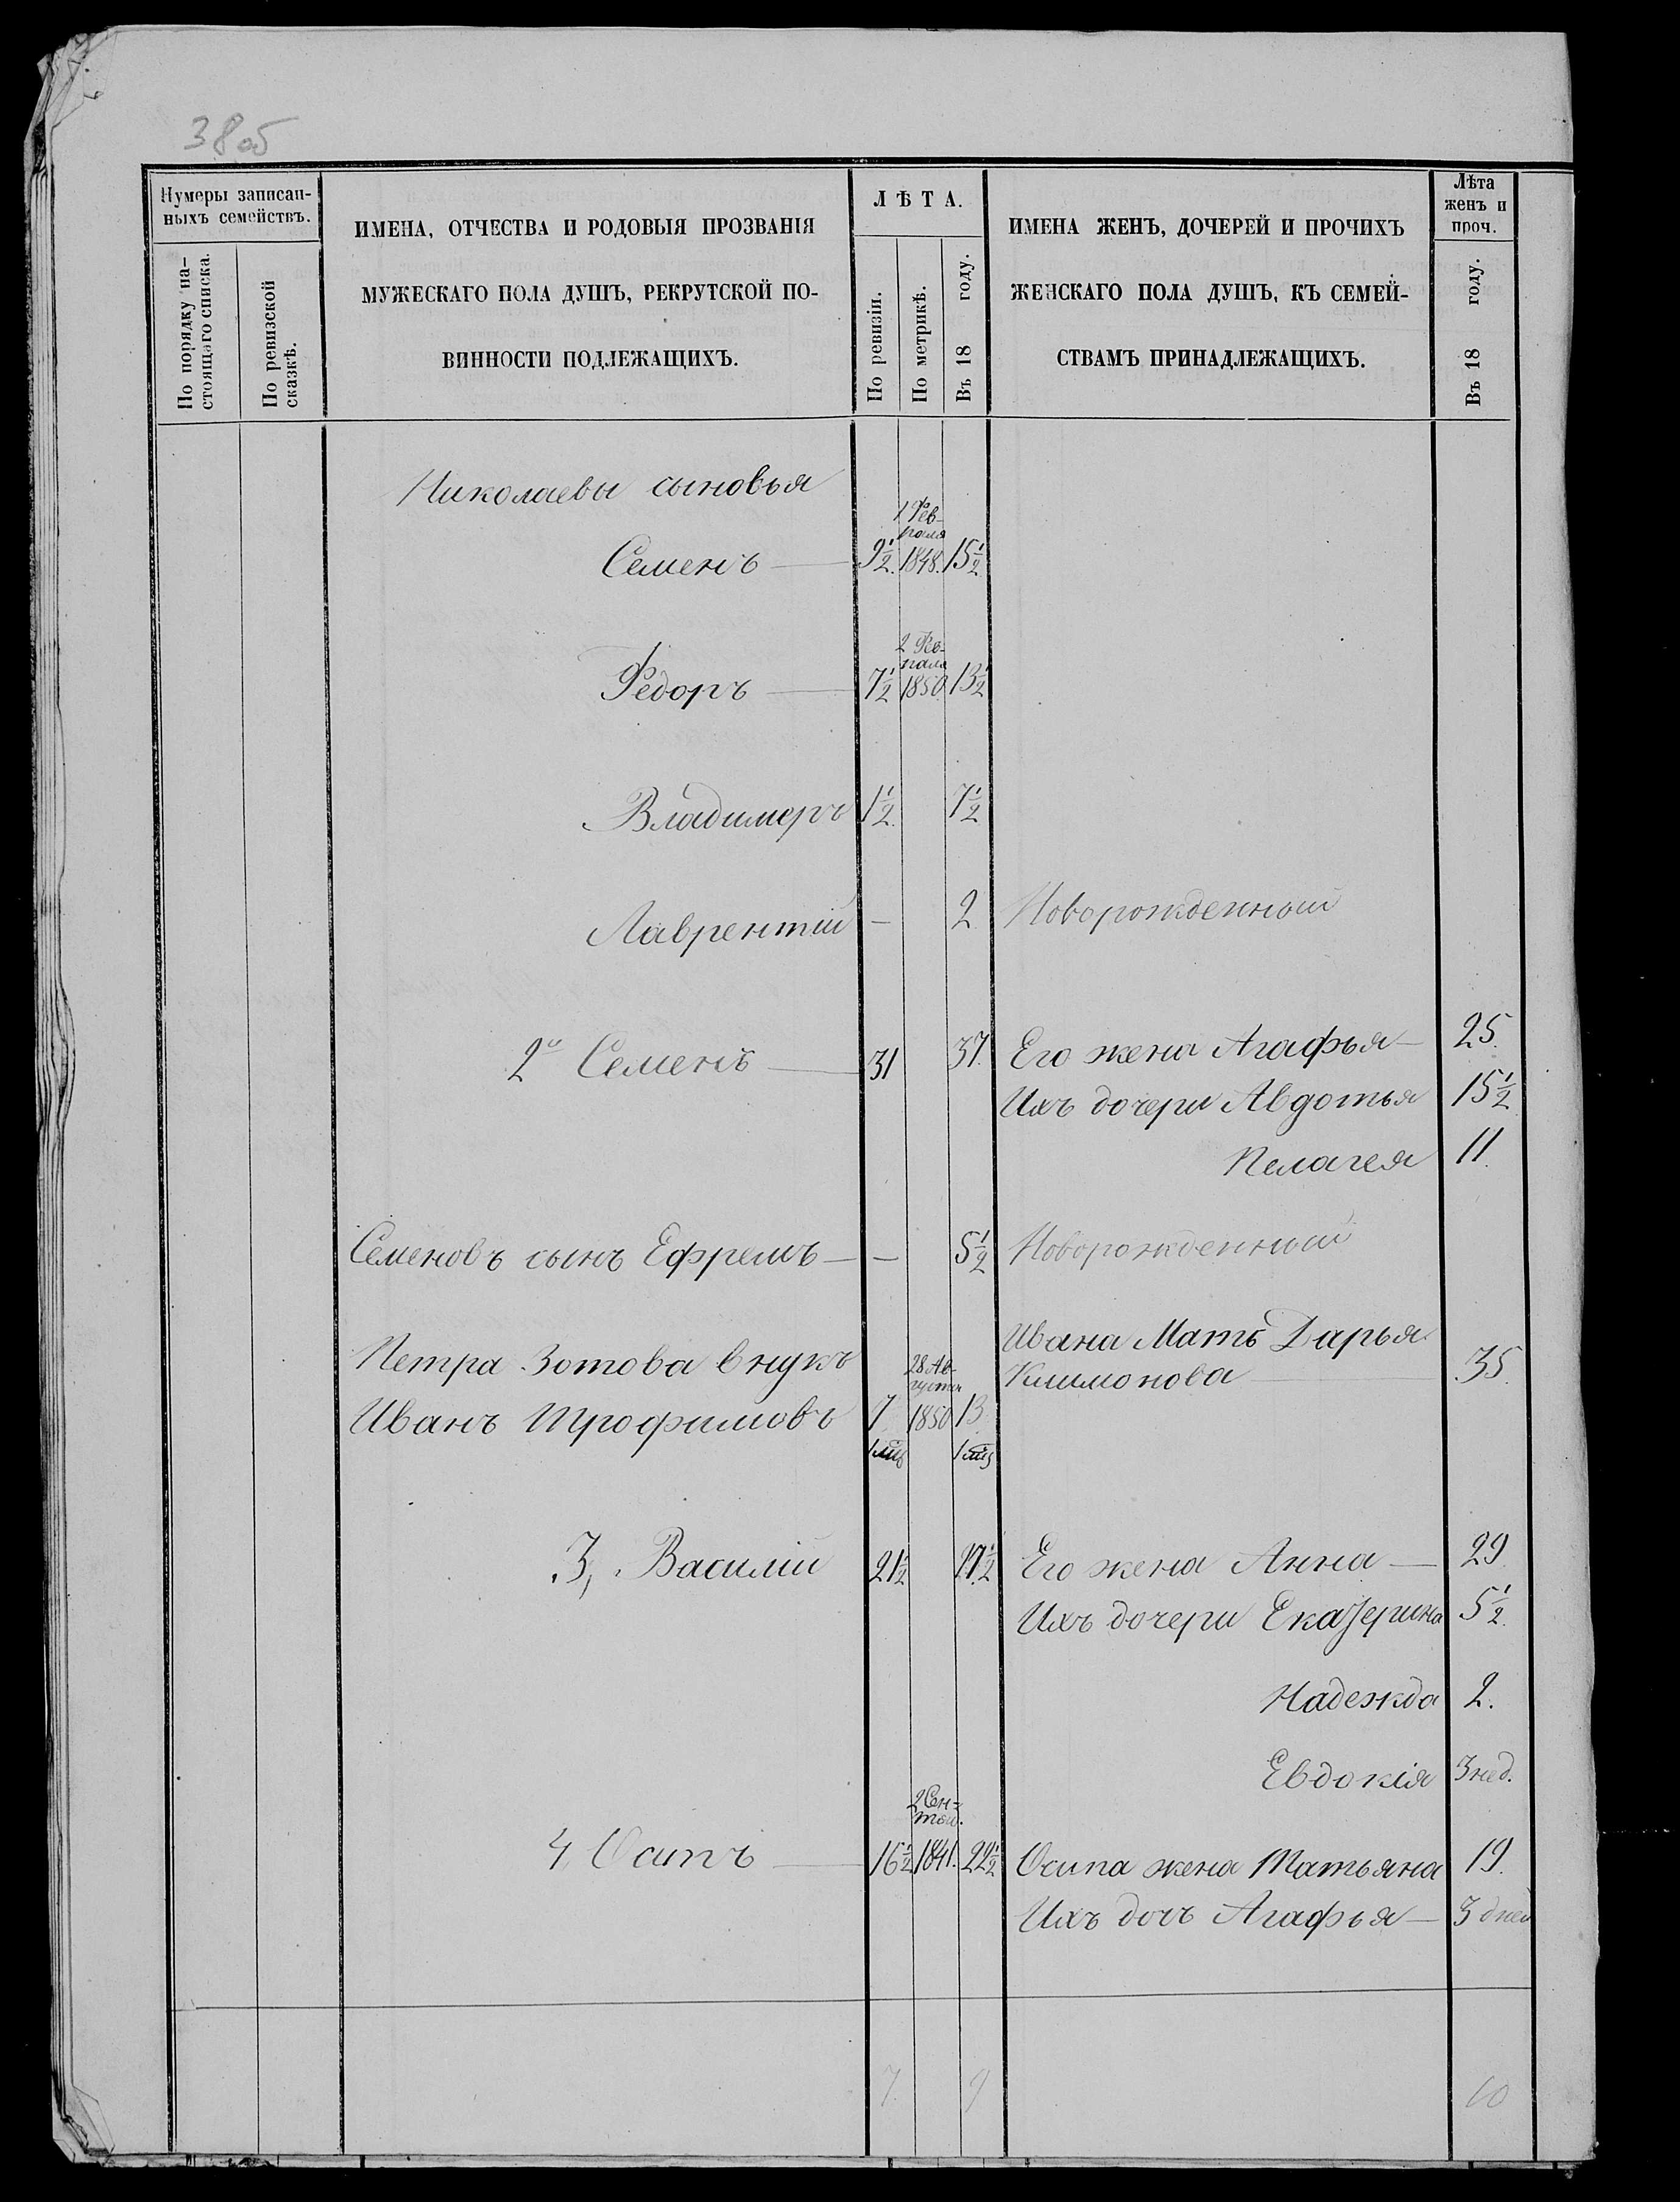 38об
Нумеры записан-
ныхъ семействъ.
По порядку на-
стоящаго списка.
По ревизской
сказкѣ.
ИМЕНА, ОТЧЕСТВА И РОДОВЫЯ ПРОЗВАНІЯ
МУЖЕСКАГО ПОЛА ДУШЪ, РЕКРУТСКОЙ ПО-
ВИННОСТИ ПОДЛЕЖАЩИХЪ.
ЛѢТА.
По ревизіи.
По метрикѣ.
Въ 18 году.
ИМЕНА ЖЕНЪ, ДОЧЕРЕЙ И ПРОЧИХЪ
ЖЕНСКАГО ПОЛА ДУШЪ, КЪ СЕМЕЙ-
СТВАМЪ ПРИНАДЛЕЖАЩИХЪ.
Лѣта
женъ и
проч.
Въ 18 году.
Николаевы сыновья
1 Фев-
раля
Семенъ — 9½. 1848. 15½
2 Фев-
раля
Федоръ — 7½ 1850 13½
Владимеръ 1½. 7½
Лаврентій — 2 Новорожденный
2й Семенъ — 31 37. Его жена Агафья — 25.
Ихъ дочери Авдотья 15½
Пелагея 11.
Семеновъ сынъ Ефремъ — — 5½ Новорожденный
Ивана Мать Дарья
Петра Зотова внукъ 28 Ав-
густа Климонова — 35.
Иванъ Трофимовъ 7 1850 13
1 мц 1 мц
3, Василій 21½ 27½ Его жена Анна — 29
Ихъ дочери Екатерина 5½.
Надежда 2.
Евдокія 3 нед.
2 Сен-
тяб.
4, Осипъ — 16½ 1841. 22½ Осипа жена Татьяна 19.
Ихъ дочь Агафья — 3 дней
7. 9 10